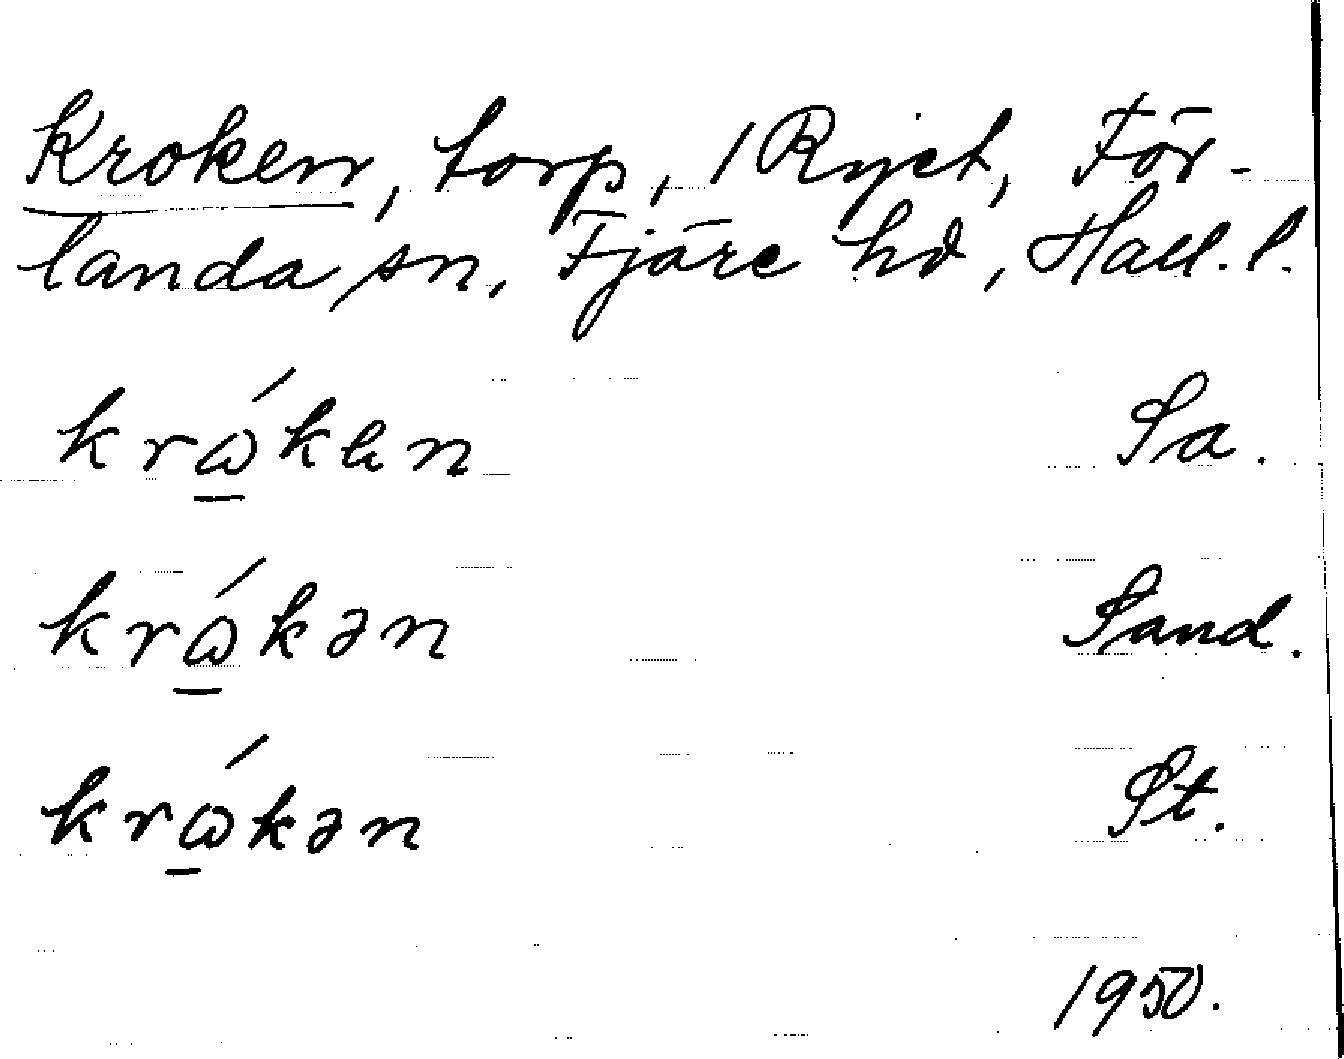 Kroken, torp, 1 Ryet, För-
landa sn, Fjäre hd, Hall. l.
krώ̱ken Sa.
krώ̱kən Sand.
krώ̱kən St.
1950.